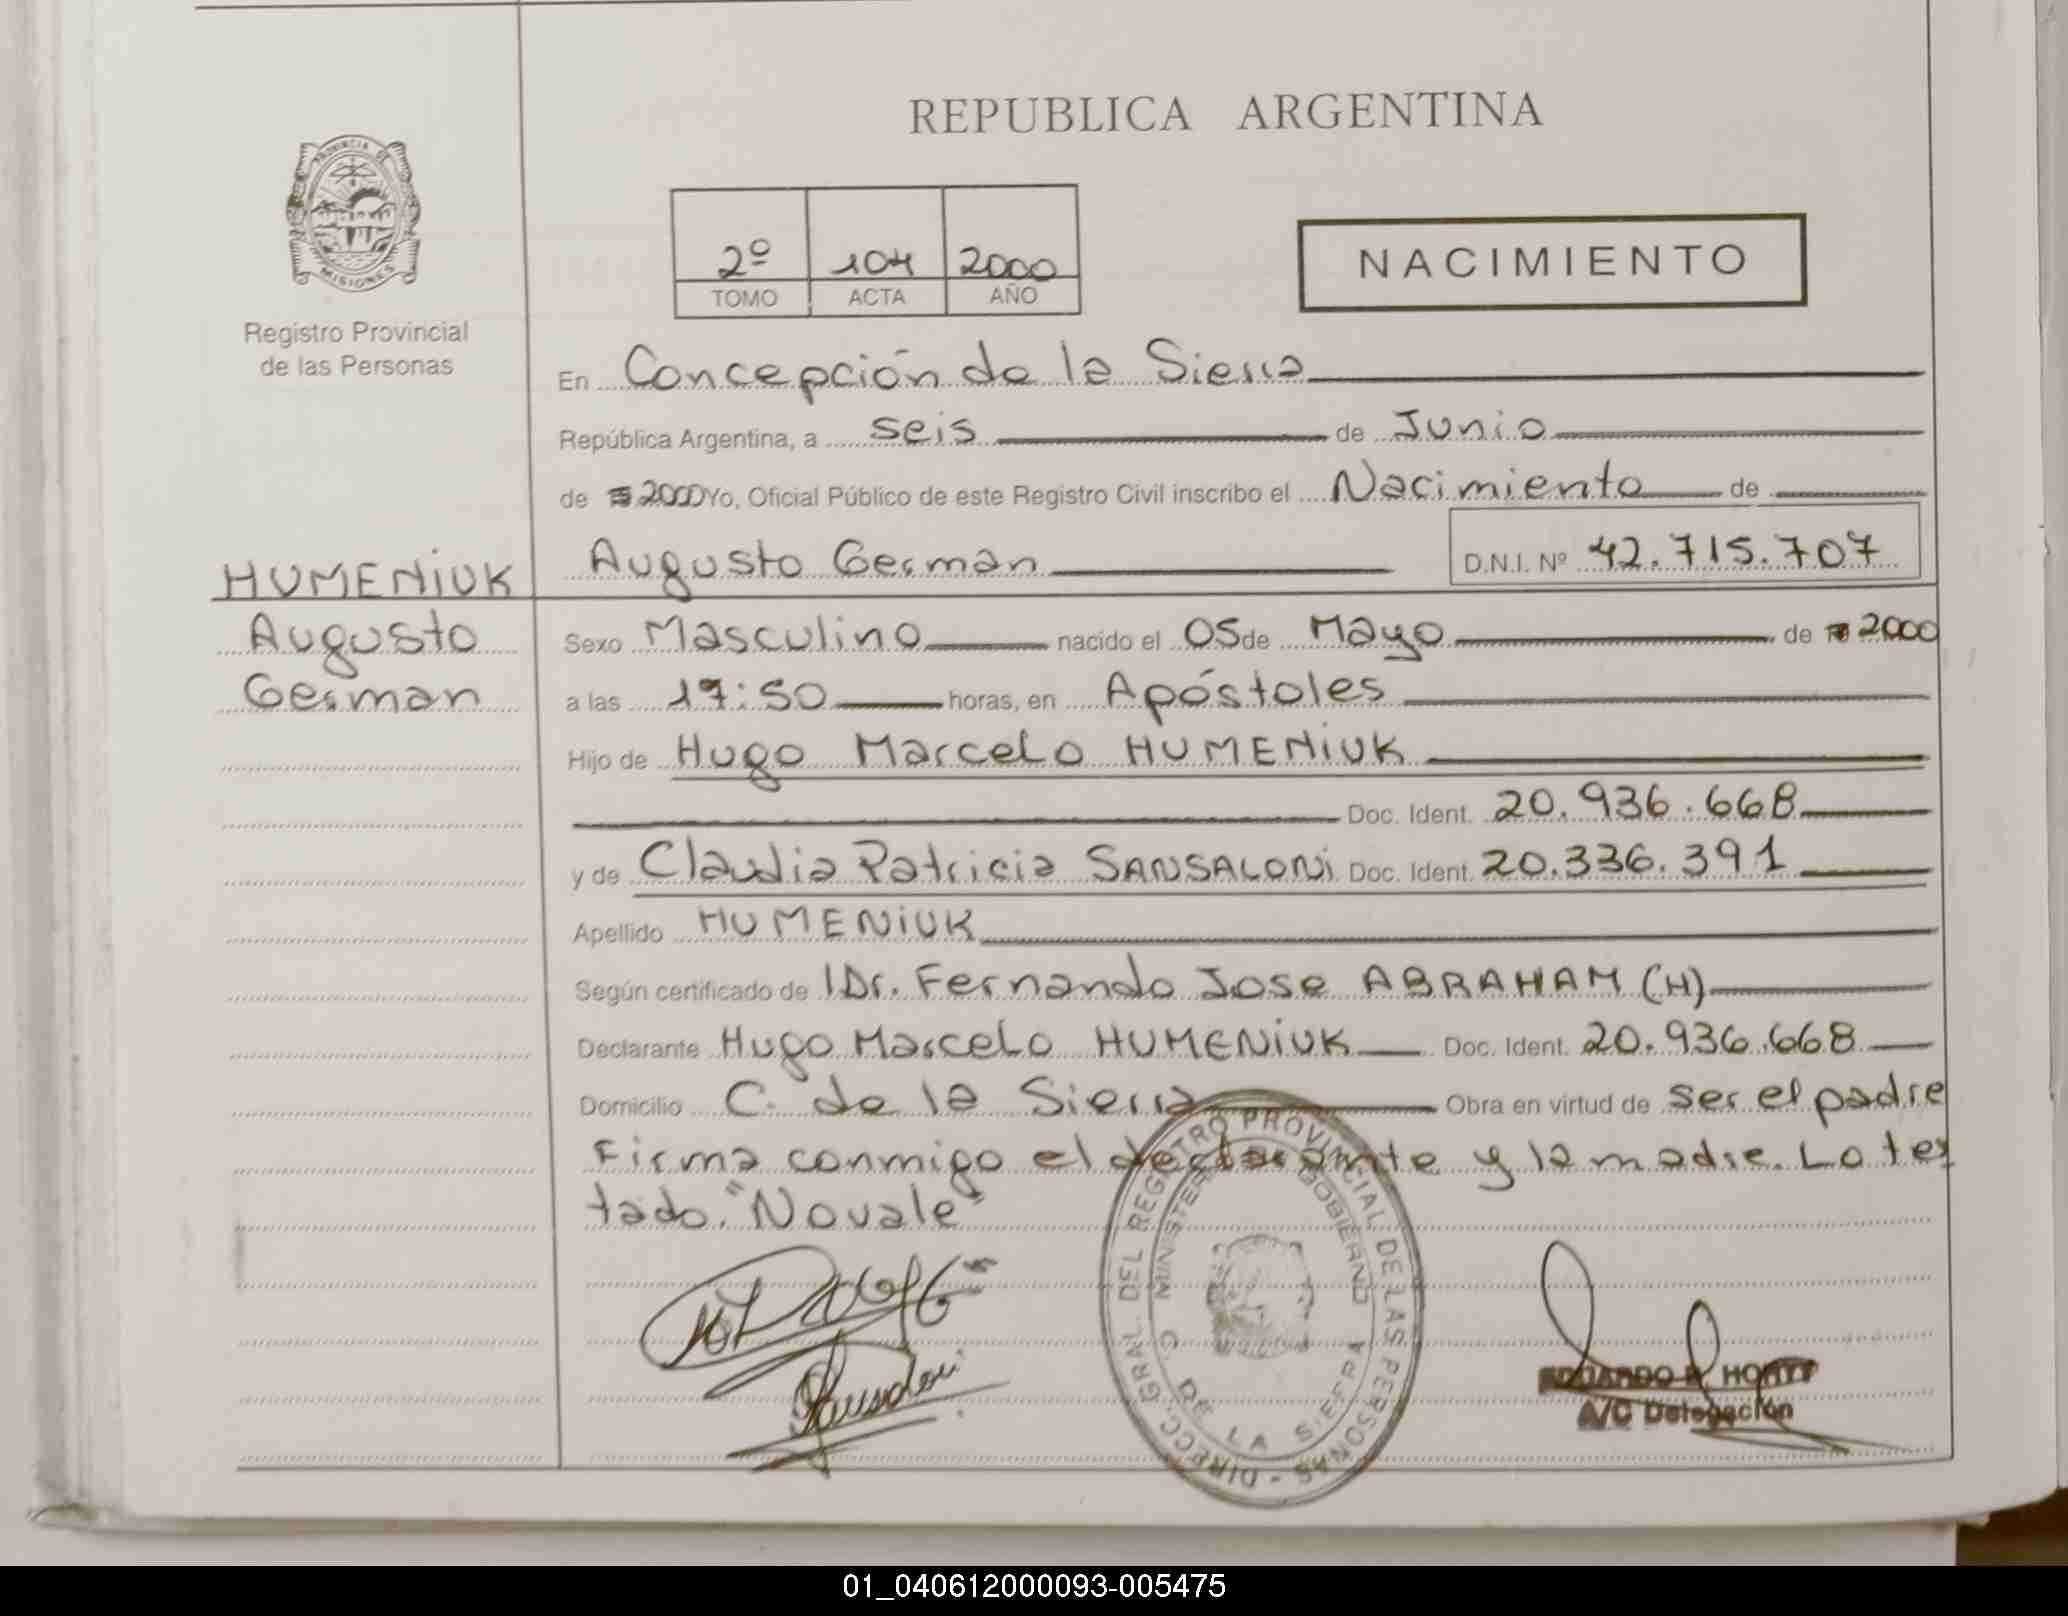 REPUBLICA ARGENTINA
PROVINCIA DE MISIONES
Registro Provincial
de las Personas
2º 104 2000
TOMO ACTA AÑO
NACIMIENTO
En Concepción de la Sierra
República Argentina, a seis de Junio
de 2000 Yo, Oficial Público de este Registro Civil inscribo el Nacimiento de
Augusto German D.N.I. Nº 42.715.707
HUMENIUK
Augusto
German
Sexo Masculino nacido el 05 de Mayo de 2000
a las 17:50 horas, en Apóstoles
Hijo de Hugo Marcelo HUMENIUK
Doc. Ident. 20.936.668
y de Claudia Patricia SANSALONI Doc. Ident. 20.336.391
Apellido HUMENIUK
Según certificado de Dr. Fernando Jose ABRAHAM (H)
Declarante Hugo Marcelo HUMENIUK Doc. Ident. 20.936.668
Domicilio C. de la Sierra Obra en virtud de ser el padre
Firma conmigo el declarante y la madre. Lo tes
tado. "No vale"
DIRECC. GRAL. DEL REGISTRO PROVINCIAL DE LAS PERSONAS -
MINISTER GOBIERNO
C. DE LA SIERRA
EDUARDO R. HORTT
A/C Delegación
01_040612000093-005475